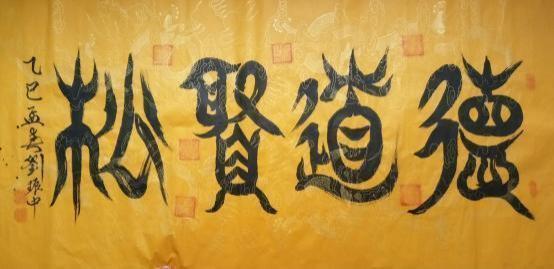 德道賢松
乙巳孟春劉振中